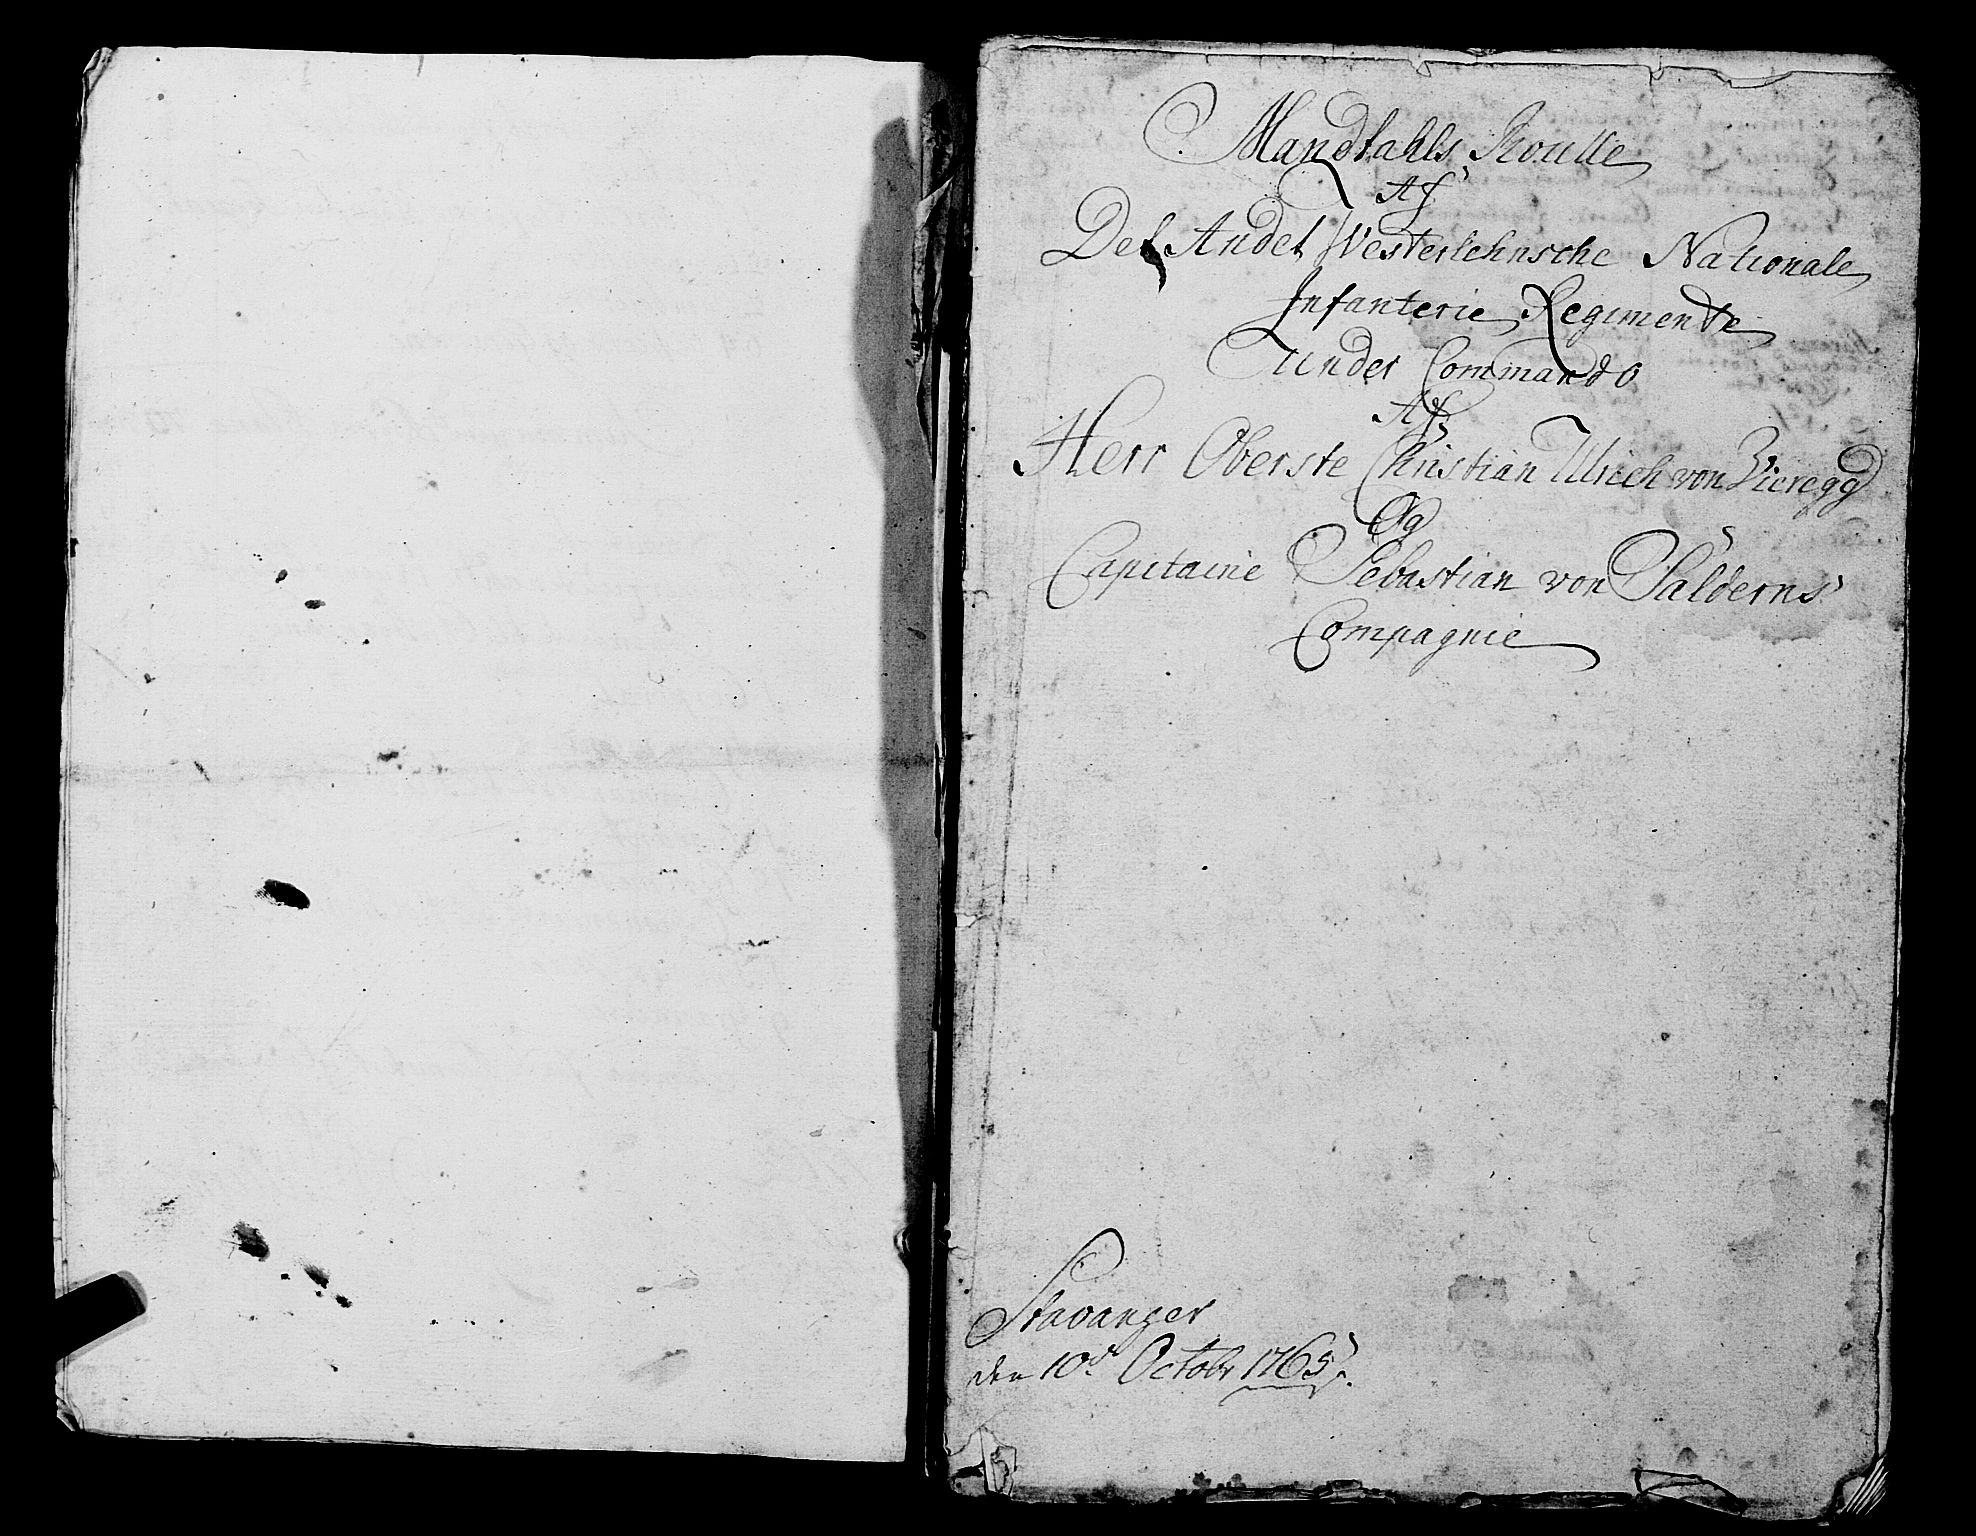 Mandtahls Roulle
Af
Det Andet Westerlehnsche Nationale
Infanterie Regimente
under Commando
Af
Herr Oberste Christian Ulrich von Vieregg
Og
Capitaine Sebastian von Salderns
Compagnie
Stavanger
den 10d Octobr 1765.